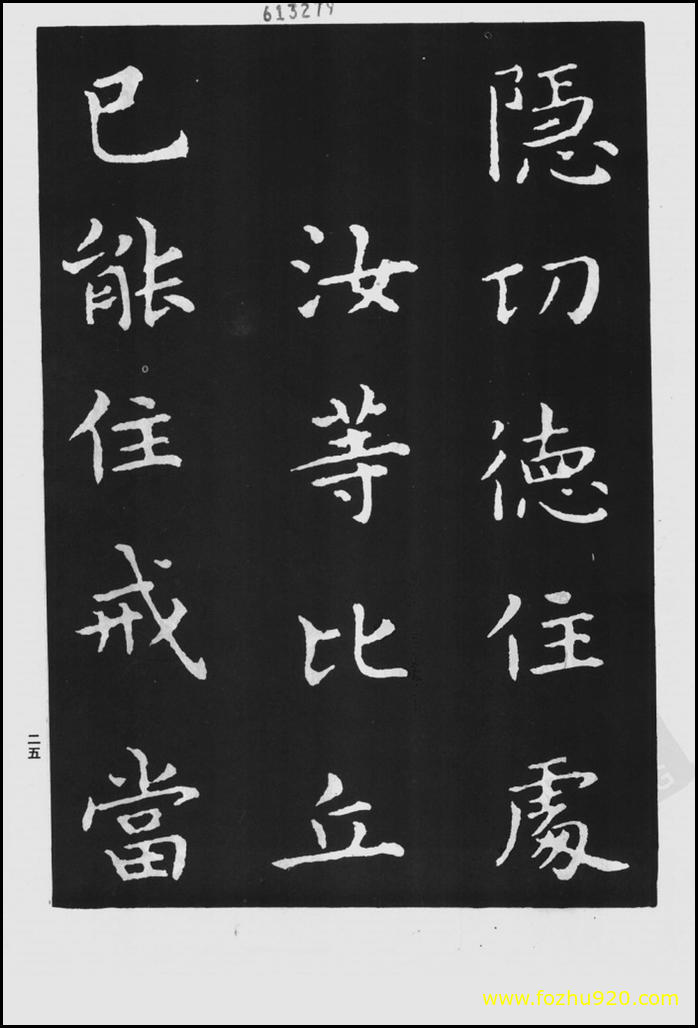 613279
隱切德住處
汝等比丘
已能住戒當
二五
www.fozhu920.com